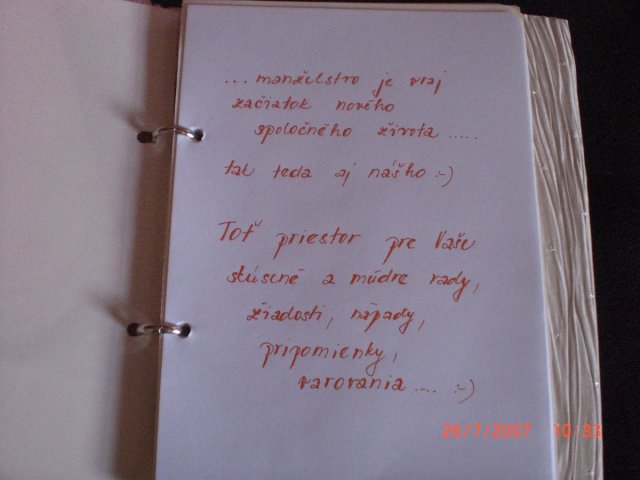 ... manželstvo je vraj
začiatok nového
spoločného života .....
tak teda aj nášho :-)
Toť priestor pre Vaše
skúsené a múdre rady,
žiadosti, nápady,
pripomienky,
varovania .... :-)
26/7/2007 10:33